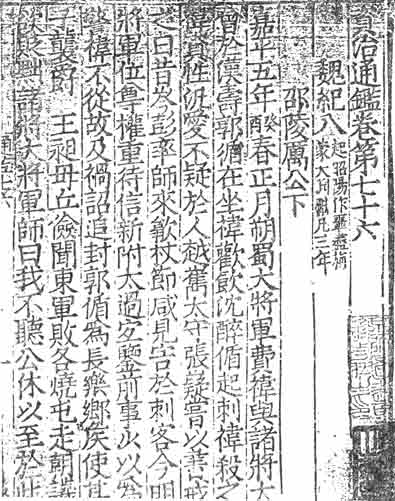 資治通鑑卷第七十六
魏紀八 起昭陽作噩盡旃
蒙大淵獻凡三年
邵陵厲公下
嘉平五年癸酉春正月朔蜀大將軍費禕與諸將大
會於漢壽郭循在坐禕歡飲沈醉循起刺禕殺之
禕資性汎愛不疑於人越巂太守張嶷嘗以書戒
之曰昔岑彭率師來歙杖節咸見害於刺客今明
將軍位尊權重待信新附太過宜鑒前事少以為
警禕不從故及禍詔追封郭循為長樂鄉侯使其
子襲爵 王昶毌丘儉聞東軍敗各燒屯走朝議
欲貶黜諸將大將軍師曰我不聽公休以至於此